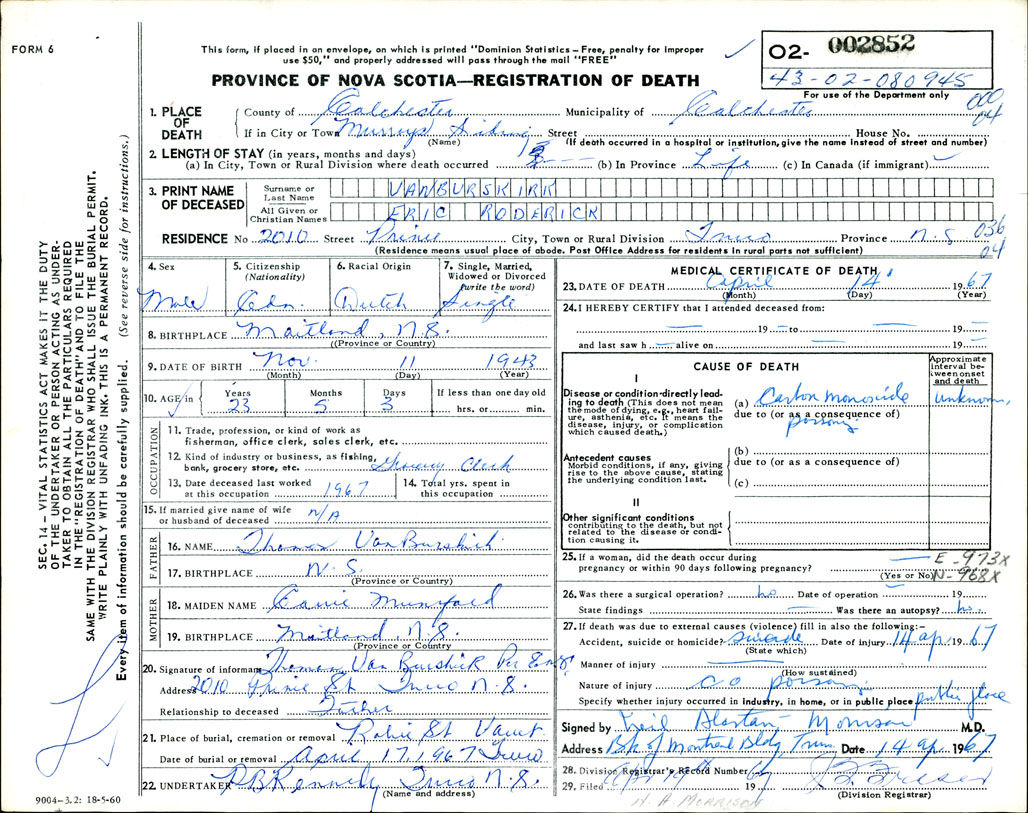 FORM 6
This form, if placed in an envelope, on which is printed "Dominion Statistics – Free, penalty for improper
use $50," and properly addressed will pass through the mail "FREE"
PROVINCE OF NOVA SCOTIA—REGISTRATION OF DEATH
O2- 002852
43-02-080945
For use of the Department only
000
04
1. PLACE OF DEATH
County of Colchester Municipality of Colchester
If in City or Town Murrays Siding Street House No.
(Name) (If death occurred in a hospital or institution, give the name instead of street and number)
2. LENGTH OF STAY (in years, months and days)
(a) In City, Town or Rural Division where death occurred (b) In Province Life (c) In Canada (if immigrant)
3. PRINT NAME OF DECEASED
Surname or Last Name VANBURSKIRK
All Given or Christian Names ERIC RODERICK
RESIDENCE No 2010 Street Prince City, Town or Rural Division Truro Province N.S
036
04
(Residence means usual place of abode. Post Office Address for residents in rural parts not sufficient)
4. Sex Male
5. Citizenship (Nationality) Cdn
6. Racial Origin Dutch
7. Single, Married, Widowed or Divorced (write the word) Single
8. BIRTHPLACE Maitland, N.S.
(Province or Country)
9. DATE OF BIRTH Nov. 11 1943
(Month) (Day) (Year)
10. AGE in Years 23 Months 5 Days 3 If less than one day old
hrs. or min.
OCCUPATION
11. Trade, profession, or kind of work as
fisherman, office clerk, sales clerk, etc.
12. Kind of industry or business, as fishing,
bank, grocery store, etc. Grocery Clerk
13. Date deceased last worked
at this occupation 1967
14. Total yrs. spent in
this occupation
15. If married give name of wife
or husband of deceased n/A
FATHER
16. NAME Thomas VanBurskirk
17. BIRTHPLACE N.S.
(Province or Country)
MOTHER
18. MAIDEN NAME Carrie Mumford
19. BIRTHPLACE Maitland, N.S.
(Province or Country)
20. Signature of informant Thomas Van Burskirk Per
Address 2010 Prince St Truro N.S.
Relationship to deceased Father
21. Place of burial, cremation or removal Robie St Vault
Date of burial or removal April 17, 1967 Truro
22. UNDERTAKER Truro N.S.
(Name and address)
9004-3.2: 18-5-60
MEDICAL CERTIFICATE OF DEATH
23. DATE OF DEATH April 14 1967
(Month) (Day) (Year)
24. I HEREBY CERTIFY that I attended deceased from:
— 19 — to — 19 —
and last saw h — alive on — 19 —
CAUSE OF DEATH
Approximate Interval between onset and death
I
Disease or condition directly leading to death (This does not mean the mode of dying, e.g., heart failure, asthenia, etc. It means the disease, injury, or complication which caused death.)
(a) Carbon monoxide unknown
due to (or as a consequence of)
poisoning
Antecedent causes
Morbid conditions, if any, giving rise to the above cause, stating the underlying condition last.
(b)
due to (or as a consequence of)
(c)
II
Other significant conditions
contributing to the death, but not related to the disease or condition causing it.
25. If a woman, did the death occur during
pregnancy or within 90 days following pregnancy? —
(Yes or No)
E-973X
N-968X
26. Was there a surgical operation? no Date of operation — 19
State findings — Was there an autopsy? no
27. If death was due to external causes (violence) fill in also the following:–
Accident, suicide or homicide? suicide Date of injury 14 ap. 1967
(State which)
Manner of injury —
(How sustained)
Nature of injury CO poisoning
Specify whether injury occurred in industry, in home, or in public place public place
Signed by Morrison M.D.
Address Bk of Montreal Bldg Truro Date 14 ap. 1967
28. Division Registrar's Record Number
29. Filed 1967
(Division Registrar)
H. A MORRISON
SEC. 14 – VITAL STATISTICS ACT MAKES IT THE DUTY
OF THE UNDERTAKER OR PERSON ACTING AS UNDER-
TAKER TO OBTAIN ALL THE PARTICULARS REQUIRED
IN THE "REGISTRATION OF DEATH" AND TO FILE THE
SAME WITH THE DIVISION REGISTRAR WHO SHALL ISSUE THE BURIAL PERMIT.
WRITE PLAINLY WITH UNFADING INK. THIS IS A PERMANENT RECORD.
Every item of information should be carefully supplied. (See reverse side for instructions.)